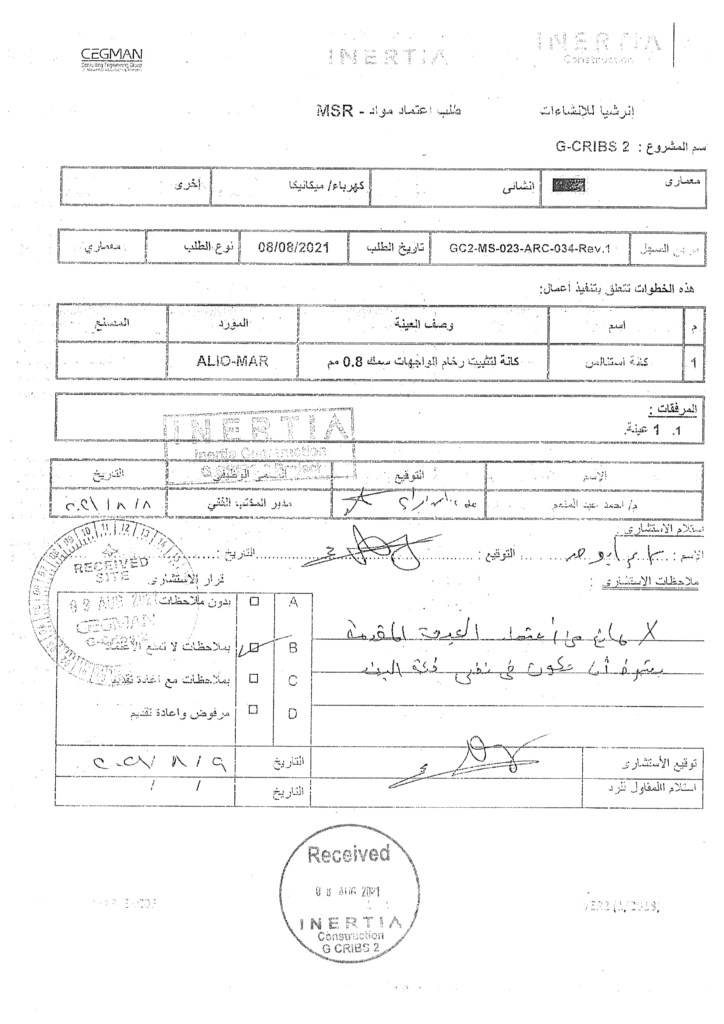 CEGMAN
Consulting Engineering Group
INERTIA
INERTIA
Construction
إنرشيا للإنشاءات
طلب اعتماد مواد - MSR
سم المشروع : G-CRIBS 2
معمارى
انشائى
كهرباء/ ميكانيكا
إخرى
السجل
GC2-MS-023-ARC-034-Rev.1
تاريخ الطلب
08/08/2021
نوع الطلب
معماري
هذه الخطوات تتعلق بتنفيذ أعمال:
م
اسم
وصف العينة
المورد
المصنع
1
كانة استنالس
كانة لتثبيت رخام الواجهات سمك 0.8 مم
ALIO-MAR
المرفقات :
1. 1 عينة.
INERTIA
Inertia Construction
الإسم
التوقيع
المسمى الوظيفي
التاريخ
م/ احمد عبد المنعم
مدير المكتب الفني
٢٠٢١/٨/٨
استلام الاستشارى
الإسم :
التوقيع :
التاريخ :
ملاحظات الإستشارى :
قرار الإستشارى
RECEIVED
SITE
AUG 2021
CEGMAN
A
بدون ملاحظات
B
بملاحظات لا تمنع الاعتماد
C
بملاحظات مع اعادة تقديم
D
مرفوض واعادة تقديم
لا مانع من أعتماد العينة المقدمة
بشرط أن تكون في نفس
توقيع الأستشارى
التاريخ
٢٠٢١/٨/٩
استلام االمقاول للرد
التاريخ
/ /
Received
08 AUG 2021
INERTIA
Construction
G CRIBS 2